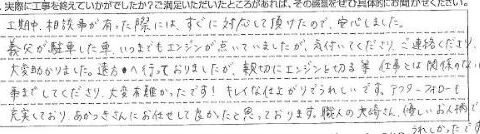 実際に工事を終えていかがでしたか？ご満足いただいたところがあれば、その感想をぜひ具体的にお聞かせください。
工期中、相談事が有った際には、すぐに対応して頂けたので、安心しました。
義父が駐車した車、いつまでもエンジンが点いていましたが、気付いてくださり、ご連絡くださり、
大変助かりました。遠方へ行っておりましたが、親切にエンジンを切る等、仕事とは関係のない
事までしてくださり、大変有難かったです！キレイな仕上がりでうれしいです。アフターフォローも
充実しており、あかつきさんにお任せして良かったと思っております。職人の大崎さん、優しいお人柄で
うれしかったです